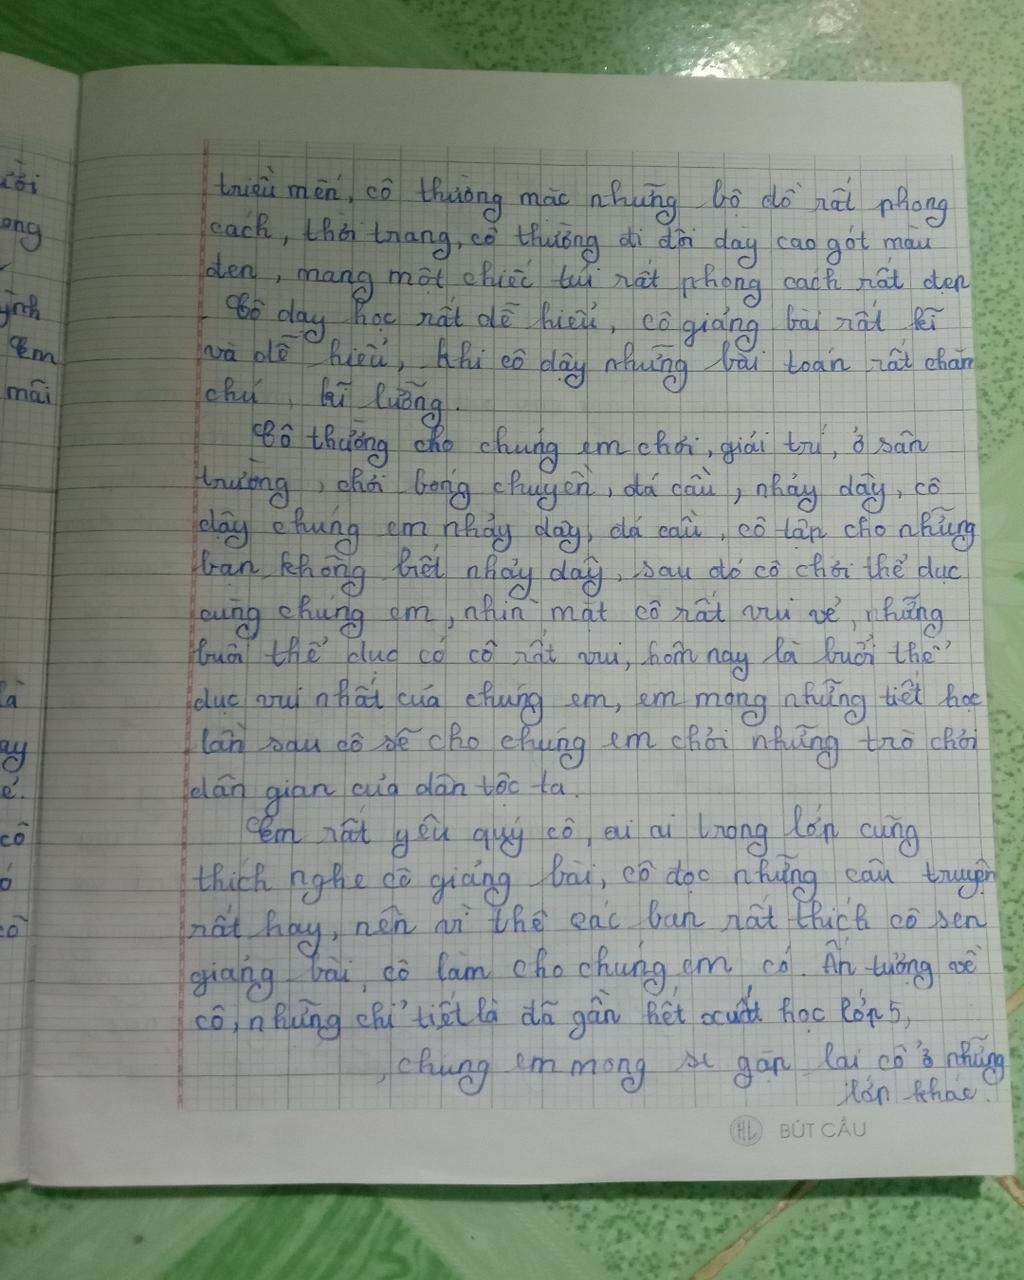 triều mến, cô thường mặc những bộ đồ rất phong
cách, thời trang, cô thường đi đôi dày cao gót màu
đen, mang một chiếc túi rất phong cách rất đẹp
Cô dạy học rất dễ hiểu, cô giảng bài rất kĩ
và dễ hiểu, khi cô dậy những bài toán rất chăm
chú, kĩ lưỡng.
Cô thường cho chúng em chơi, giải trí, ở sân
trường, chơi bóng chuyền, đá cầu, nhảy dây, cô
dậy chúng em nhảy dây, đá cầu, cô tận cho những
bạn không biết nhảy dây, sau đó cô chơi thể dục
cùng chúng em, nhìn mặt cô rất vui vẻ, những
buổi thể dục có cô rất vui, hôm nay là buổi thể
dục vui nhất của chúng em, em mong những tiết học
lần sau cô sẽ cho chúng em chơi những trò chơi
dân gian của dân tộc ta.
Em rất yêu quý cô, ai ai trong lớp cũng
thích nghe cô giảng bài, cô đọc những câu truyện
rất hay, nên vì thế các bạn rất thích cô sen
giảng bài, cô làm cho chúng em có Ấn tượng về
cô, những chi tiết là đã gần hết học lớp 5,
, chúng em mong sẽ gặp lại cô ở những
lớp khác.
HL BÚT CÂU
còi
ong
ỳnh
Em
mãi
là
ay
ẻ.
cô
ó
cô